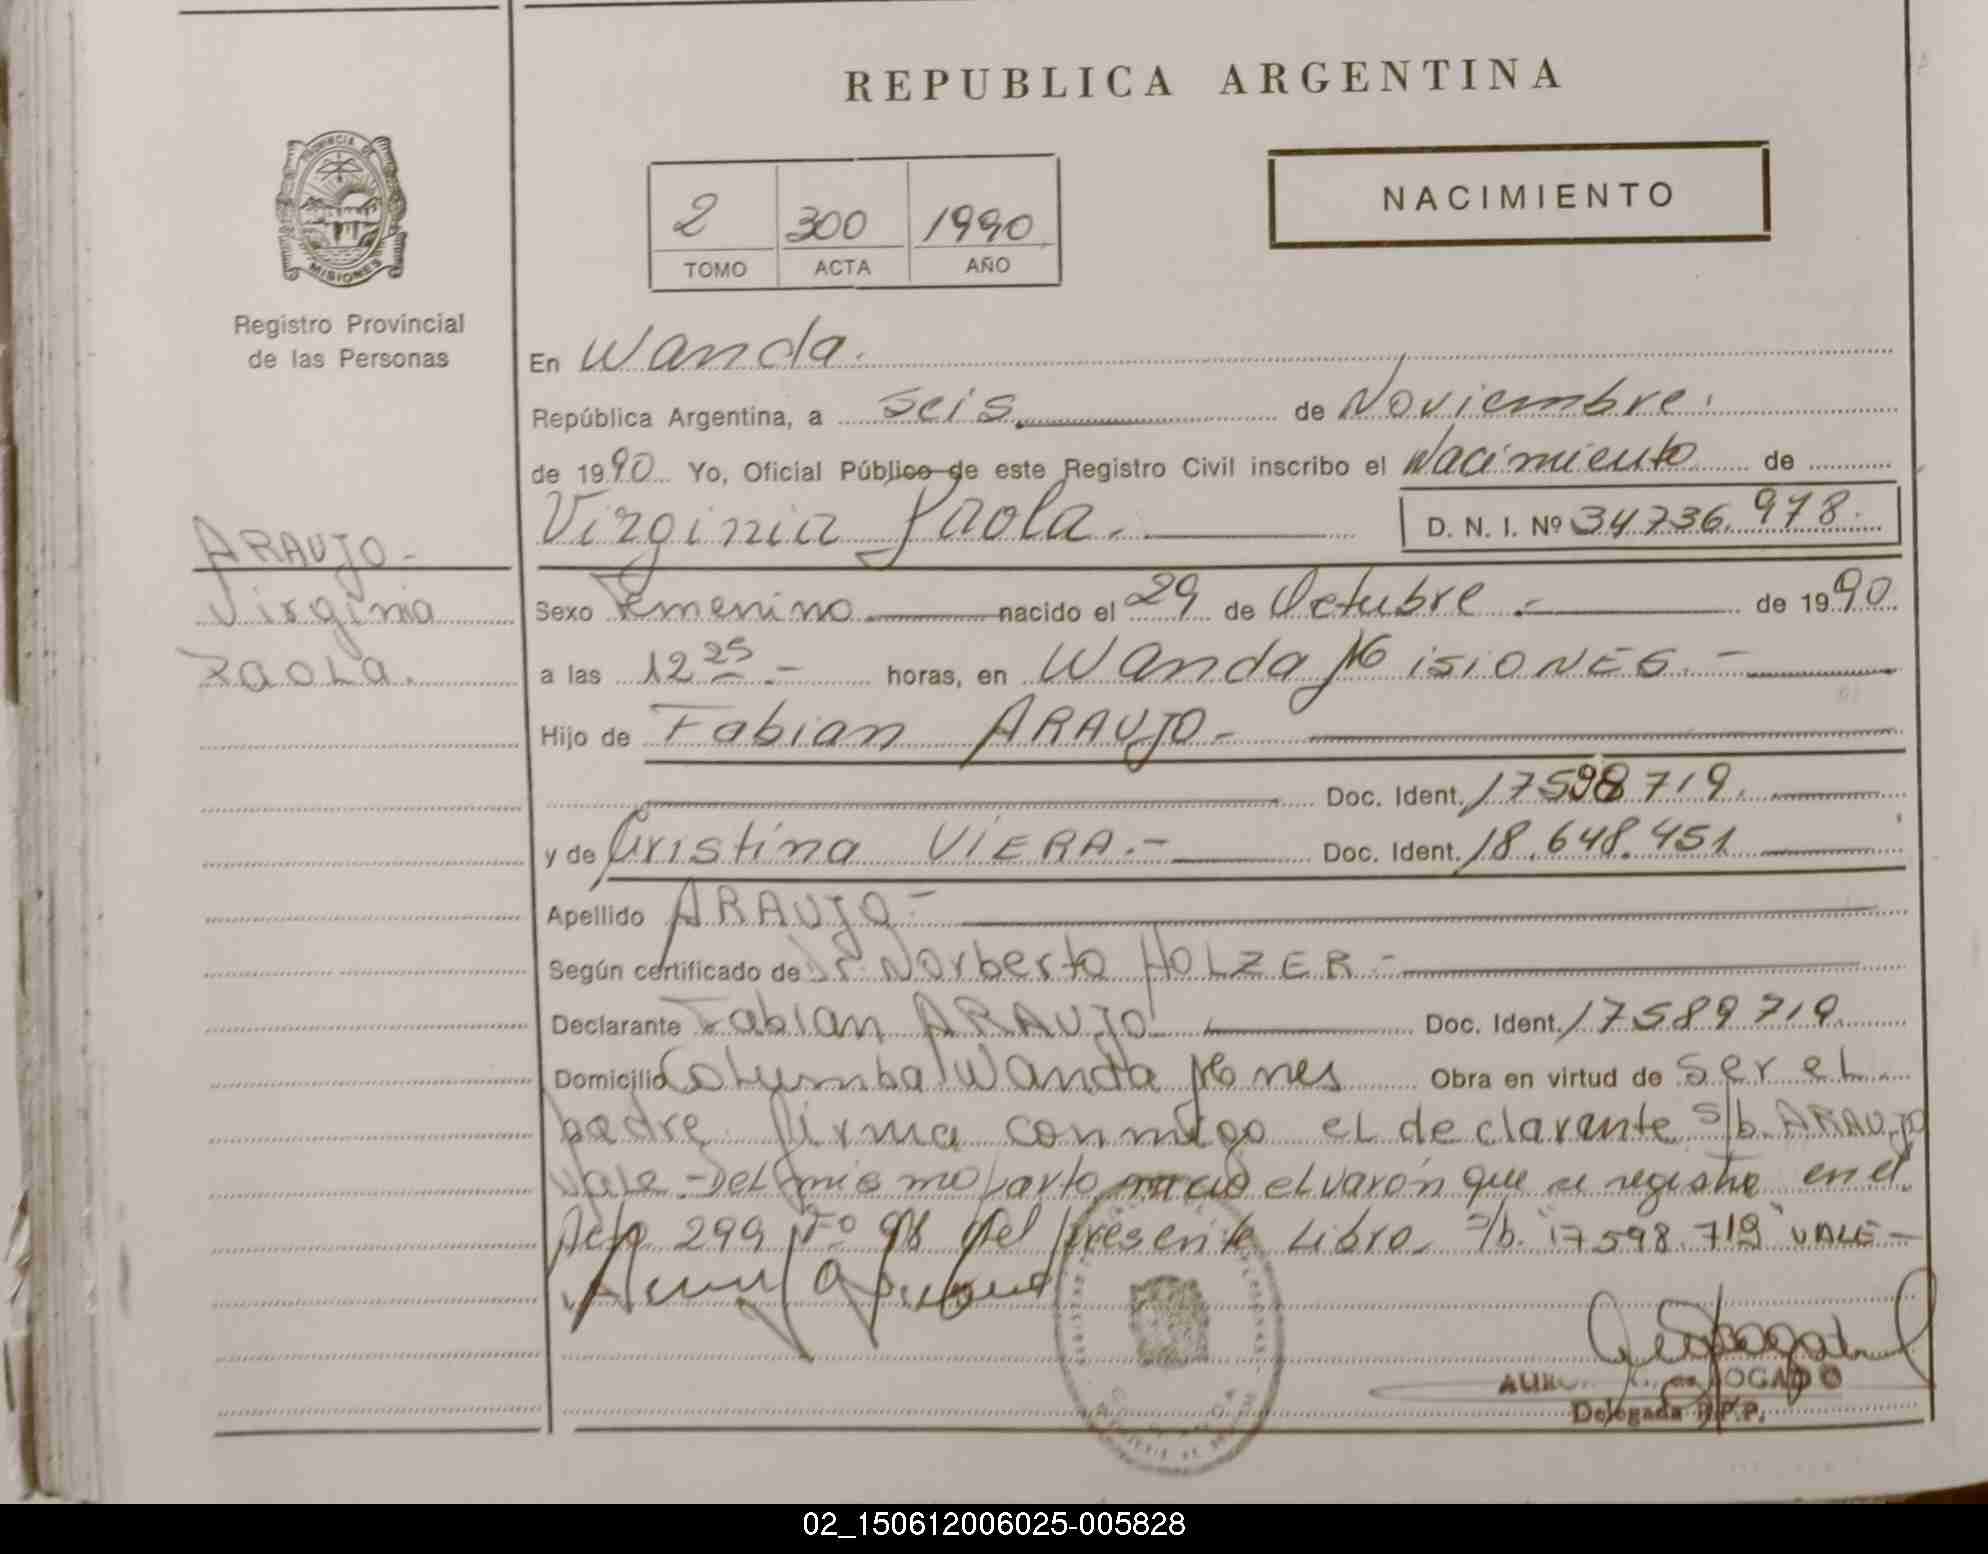 REPUBLICA ARGENTINA
PROVINCIA DE
MISIONES
2 300 1990
TOMO ACTA AÑO
NACIMIENTO
Registro Provincial
de las Personas
En Wanda.
República Argentina, a seis de Noviembre.
de 1990 Yo, Oficial Público de este Registro Civil inscribo el Nacimiento de
Virginia Paola.
D. N. I. Nº 34736.978.
ARAUJO-
Virginia
PAOLA.
Sexo Femenino nacido el 29 de Octubre.- de 1990
a las 12 25- horas, en Wanda MISIONES.-
Hijo de Fabian ARAUJO-
Doc. Ident. 17598719.
y de Cristina VIERA.- Doc. Ident. 18.648.451
Apellido ARAUJO-
Según certificado de Dr. Norberto HOLZER-
Declarante Fabian ARAUJO Doc. Ident. 17589719
Domicilio Columba Wanda Mnes Obra en virtud de ser el
padre firma conmigo el declarante S/b. ARAUJO
Vale.-Del mismo parto nació el varón que se registro en el
Acta 299 Fº 98 del presente Libro. S/b. "17598.719" VALE-
OGADO
Delegada R.P.P.
02_150612006025-005828